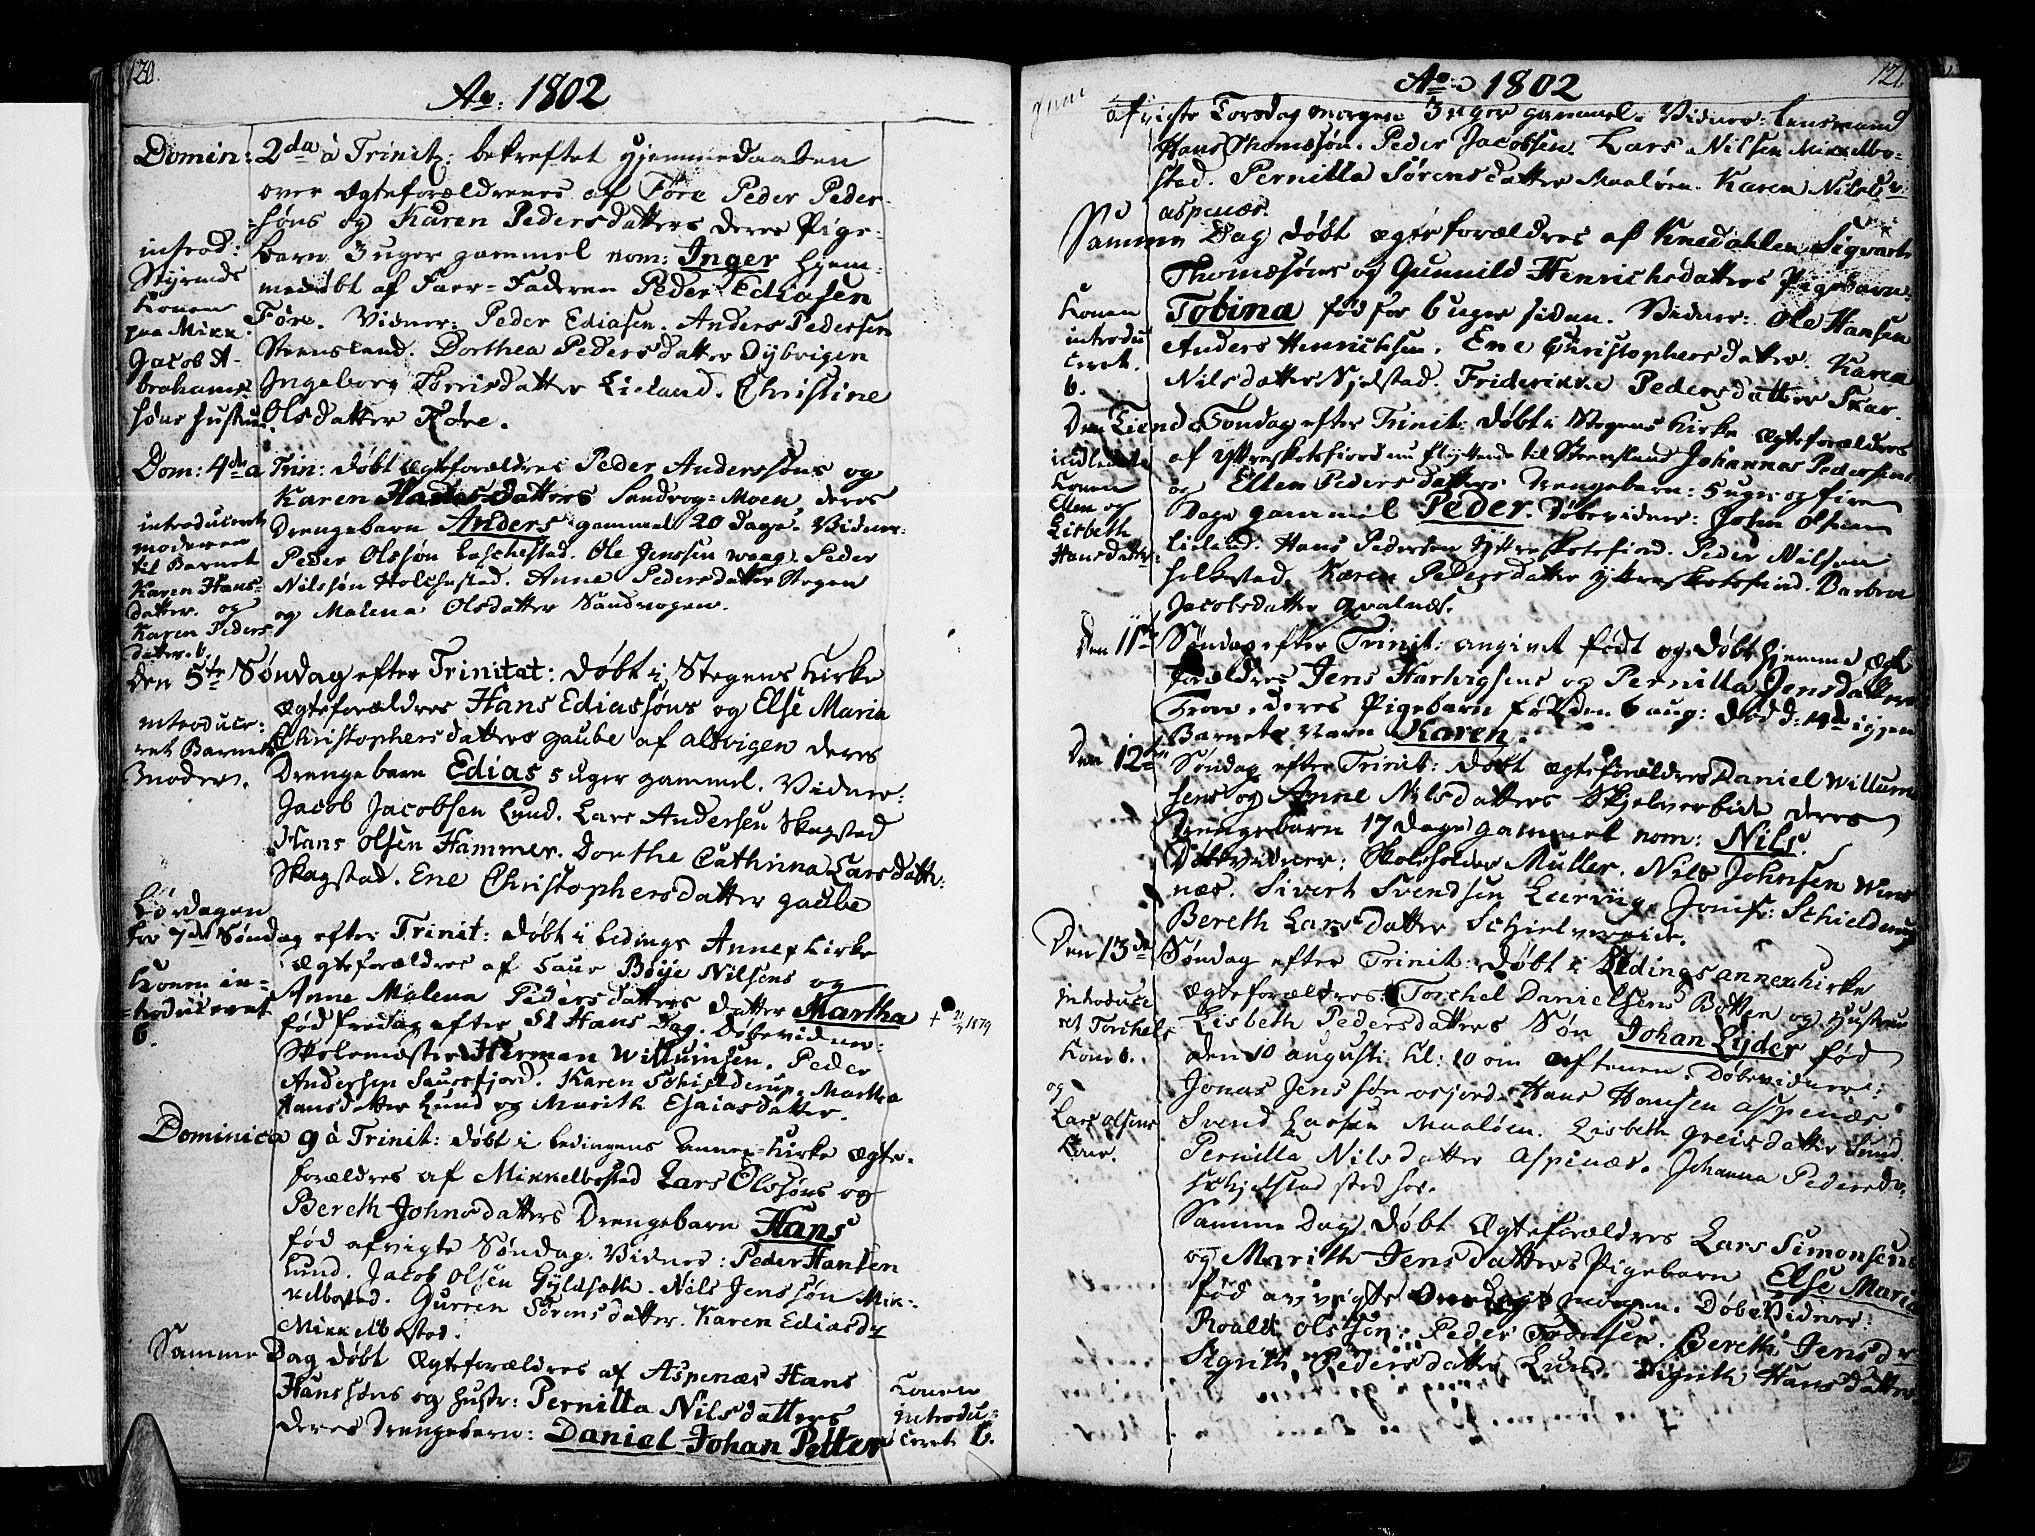 120.
Ao: 1802
Domin: 2da à Trinit: bekreftet Hjemmedaaben
over Ægteforældrenes af Føre Peder Peder-
søns og Karen Pedersdatters deres Pige-
barn 3 uger gammel nom: Inger hjem-
medøbt af Faer-Faderen Peder Ediasen
Føre. Vidner: Peder Ediasen. Anders Pedersen
Steensland. Dorthea Pedersdatter Dybvigen
Ingeborg Torrisdatter Lieland. Christine
Olsdatter Føre.
introd:
Styrmds
Konen
paa Mikk.
Jacob A-
brahams-
søns hustrue.
Dom: 4de à Trin: døbt Ægteforældres Peder Anderssøns og
Karen Hansdatters Sandvog-Moen, deres
Drengebarn Anders gammel 20 Dage. Vidner:
Peder Olssøn Laschestad. Ole Jenssen waag. Peder
Nilssøn Holchestad. Anne Pedersdatter Stegen
og Malena Olsdatter Sandvogen.
introduceret
moderen
til Barnet
Karen Hans-
datter. og
Karen Peders
datter. b.
Den 5te Søndag efter Trinitat: døbt i Stegens Kirke
Ægteforældres Hans Ediassøns og Else Maria
Christophersdatters gaube af alsvigen deres
Drengebarn Edias 5 uger gammel. Vidner:
Jacob Jacobsen Lund. Lars Andersen Skagstad
Hans Olsen Hammer. Dorthe Cathrina Larsdatt:
Skagstad. Ene Christophersdatter gaube
introduce-
ret Barnets
Moder.
Lørdagen
for 7de Søndag efter Trinit: døbt i Ledings Annex Kirke
Ægteforældres af Saur Böije Nilsens og
Anne Malena Pedersdatters datter Martha
fød fredag efter St Hans Dag. Døbevidner:
Skolemester Herman Willumsen. Peder
Andersen Saursfjord. Karen Schielderup. Martha
Hansdatter Lund og Marith Esaiasdatter.
Konen in-
troduceret
b.
Dominica 9 à Trinit: døbt i Ledingens Annex-Kirke Ægte-
forældres af Mikkelbostad Lars Olssøns og
Bereth Johnsdatters Drengebarn Hans
fød afvigte Søndag. Vidner: Peder Hansen
Lund. Jacob Olsen Gyldsæth. Nils Jenssøn Mik-
kelbostad. Gurren Sørensdatter. Karen Ediasdr
Mikkelbostad.
Samme Dag døbt Ægteforældres af Aspenæs Hans
Hanssøns og hustr: Pernilla Nilsdatters
deres Drengebarn: Daniel Johan Petter
Konen
introdu-
ceret b.
121
Ao: 1802
afvigte Torsdag morgen 3 uger gammel. Vidner: Lensmand
Hans Thomessøn. Peder Jacobsen. Lars Nilsen Mikkelbo-
stad. Pernilla Sørensdatter Maaløen. Karen Nilsdr
aspenæs.
Samme Dag døbt Ægteforældres af Knedahlen Sigvart
Thomæsøns og Gunnild Henrichsdatters Pigebarn
Tobina fød for 6 uger siden. Vidner: Ole Hansen
Anders Henrichsen. Ene Christophersdatter. Karen
Nilsdatter Sjelstad. Friderikke Pedersdatter Skar.
Konen
introdu
ceret.
b.
Den Tiende Søndag efter Trinit: døbt i Stegens Kirke Ægteforældres
af Ytterskotsfiord nu flyttende til Steensland Johannes Pedersens
og Ellen Pedersdatters Drengebarn: 5 uger og fire
Dage gammel Peder. Døbevidner: John Olsen
Lieland. Hans Pedersen Ytterskotsfiord. Peder Nilsen
Holkestad. Karen Pedersdatter Ytterskotsfiord. Barbra
Jacobsdatter Qvalnæs.
indledet
Konen
Ellen og
Lisbeth
Hansdatter
Den 11te Søndag efter Trinit: angivet født og døbt hjemme Ægte
forældres Jens Hartvigsens og Pernilla Jensdatters
Tron, deres Pigebarn fød den 6 aug: død d: 14de igjen
Barnets Navn Karen.
Den 12te Søndag efter Trinit: døbt Ægteforældres Daniel Willum
sens og Anne Nilsdatters Skjelverbide deres
Drengebarn 17 dage gammel nom: Nils.
Døbevidner: Skoleholder Müller. Nils Johnsen Wins
næs. Sivert Svendsen Leeringe. Jomfr: Schielderup
Bereth Larsdatter Schielvereide.
Den 13de Søndag efter Trinit: døbt i Ledings annexkirke
Ægteforældres: Torchel Danielsens Botten og Hustrue
Lisbeth Pedersdatters Søn Johan Lyder fød
den 10 augusti kl: 10 om aftenen. Døbevidner:
Jonas Jenssøn osjord. Hans Hansen aspenæs
Svend Larsen Maaløen. Lisbeth Greisdatter Lund.
Pernilla Nilsdatter Aspenæs. Johanna Pedersdr.
introduce
ret Torchels
Kone b.
og
Lars Olsens
Kone.
Samme Dag døbt Ægteforældres Lars Simonsens
og Marith Jensdatters Pigebarn Else Maria
fød afvigte Onsdags morgen. Døbevidner:
Roald Olssøn. Peder Todesen. Bereth Jensdr
Sigrith Pedersdatter Lund. Sigrith Hansdatter